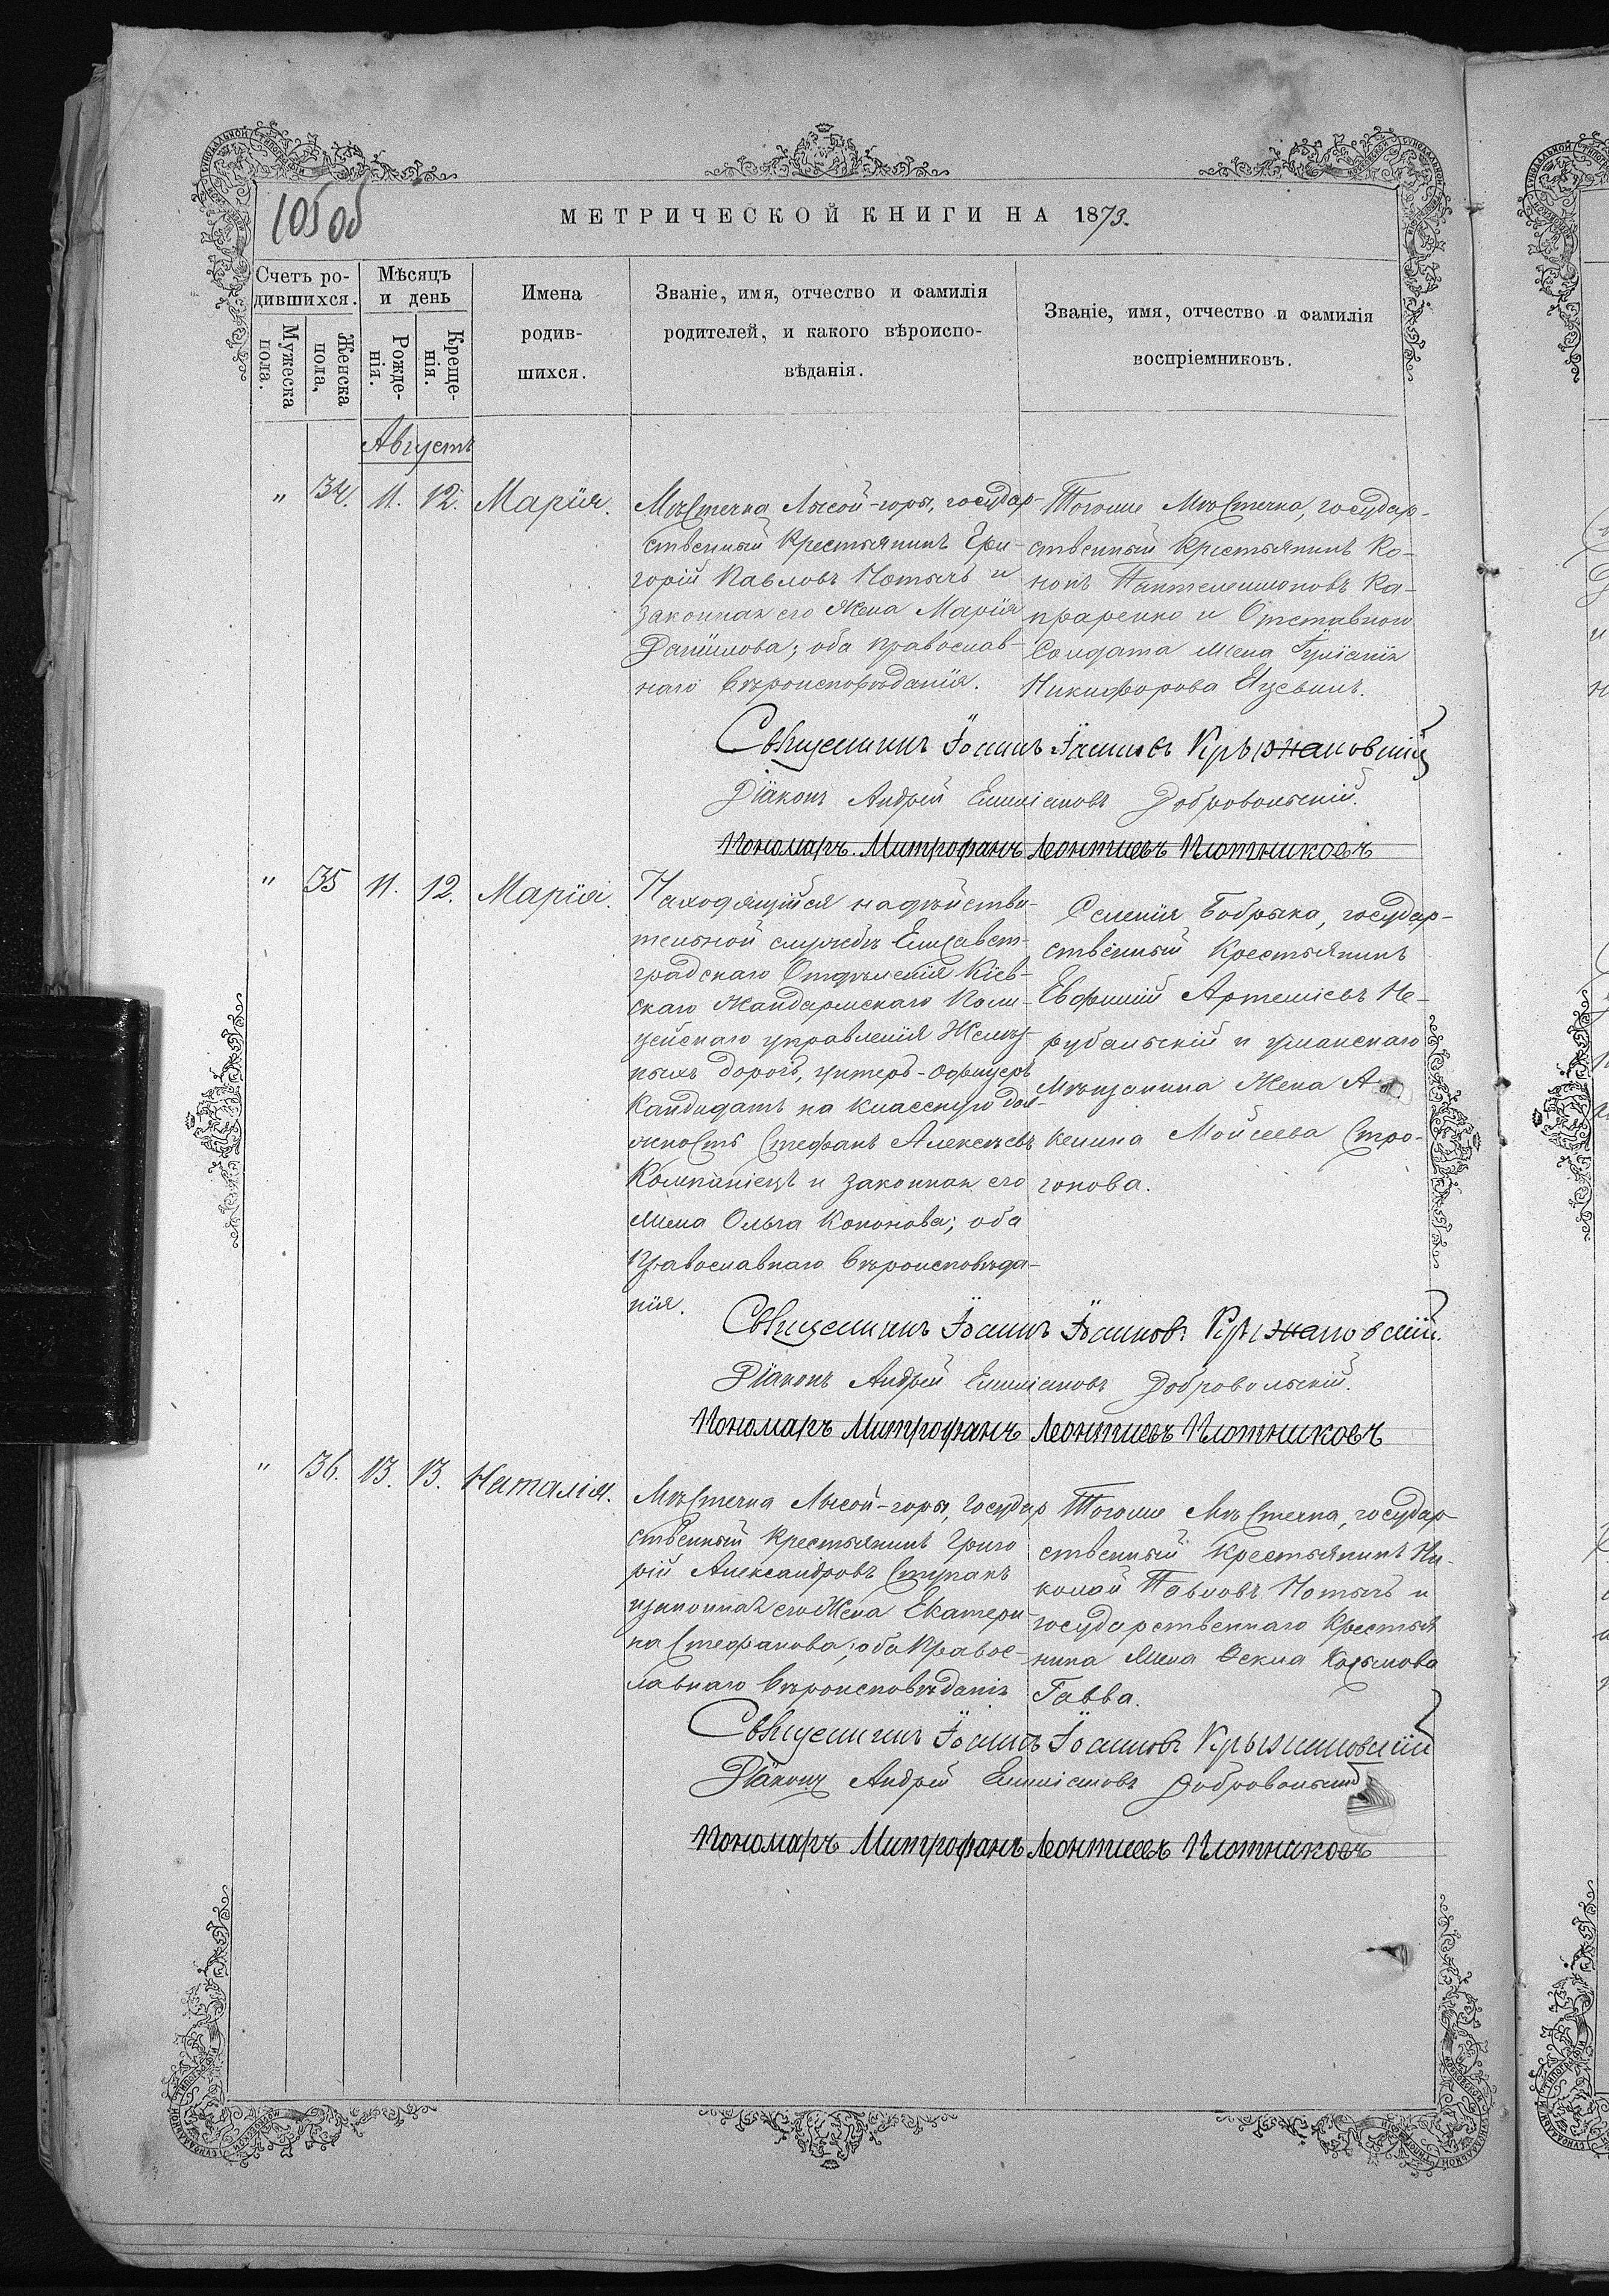 105 об
МЕТРИЧЕСКОЙ КНИГИ НА 1873.
Счетъ ро-
дившихся.
Мужеска
пола.
Женска
пола,
Мѣсяцъ
и день
Рожде-
нія.
Креще-
нія.
Имена
родив-
шихся.
Званіе, имя, отчество и фамилія
родителей, и какого вѣроиспо-
вѣданія.
Званіе, имя, отчество и фамилія
воспріемниковъ.
Августъ
" 34. 11. 12. Марія.
Мѣстечка Лысой-горы, государ-
ственный Крестьянинъ Гри-
горій Павловъ Нотычъ и
законная его жена Марія
Даніилова; оба православ-
наго вѣроисповѣданія.
Тогоже Мѣстечка, государ-
ственный Крестьянинъ Ко-
нонъ Пантелеимоновъ Ка-
праренко и Отставного
Солдата жена Іуліанія
Никифорова
Священникъ Іоаннъ Іоанновъ Крыжановскій
Діаконъ Андрей Емиліановъ Добровольскій.
Пономарь Митрофанъ Леонтиевъ Плотниковъ
" 35 11. 12. Марія.
Находящійся на дѣйстви-
тельной службѣ Елисавет-
градскаго Отдѣленія Кіев-
скаго Жандармскаго Поли-
цейскаго управленія Желѣз-
ныхъ дорогъ, унтеръ-офицеръ
Кандидатъ на классную дол-
жность Стефанъ Алексѣевъ
Компаніецъ и законная его
жена Ольга Кононова; оба
Православнаго вѣроисповѣда-
нія.
Селенія Бобрика, государ-
ственный Крестьянинъ
Евфимій Артеміевъ Не-
рубальскій и уманскаго
Мѣщанина Жена А
келина Мойсеева Стро-
гонова.
Священникъ Іоаннъ Іоанновъ Крыжановскій.
Діаконъ Андрей Емиліановъ Добровольскій.
Пономарь Митрофанъ Леонтиевъ Плотниковъ
" 36. 13. 13. Наталія.
Мѣстечка Лысой-горы, Государ
ственный Крестьянинъ Григо
рій Александровъ Ступакъ
и законная его Жена Екатери
на Стефанова; оба Правос-
лавнаго вѣроисповѣданія
Тогоже Мѣстечка, государ
ственный Крестьянинъ Ни-
колай Павловъ Нотычъ и
государственнаго Крестья
нина жена Ѳекла
Гавва.
Священникъ Іоаннъ Іоанновъ Крыжановскій
Діаконъ Андрей Емиліановъ Добровольскій
Пономарь Митрофанъ Леонтиевъ Плотниковъ